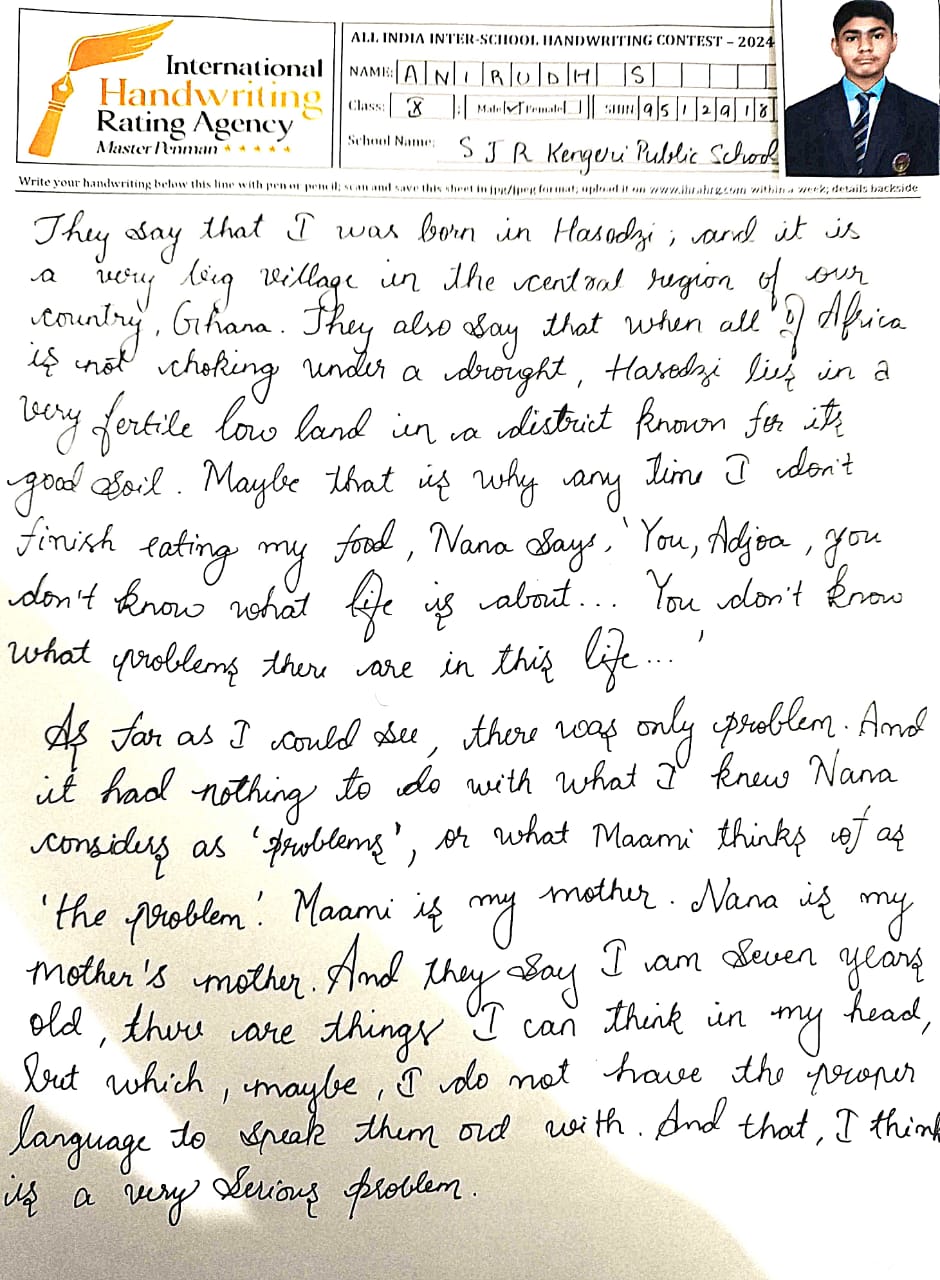 International
Handwriting
Rating Agency
Master Penman
ALL INDIA INTER-SCHOOL HANDWRITING CONTEST – 2024
NAME: ANIRUDH S
Class: X Male ✓ Female SHRN 9512918
School Name: S J R Kengeri Public School
Write your handwriting below this line with pen or pencil; scan and save this sheet in jpg/jpeg format; upload it on www.ihrahrg.com within a week; details backside
They say that I was born in Hasodzi ; and it is
a very big village in the central region of our
country, Ghana. They also say that when all of Africa
is not choking under a drought, Hasodzi lies in a
very fertile low land in a district known for its
good soil. Maybe that is why any time I don't
finish eating my food, Nana says, 'You, Adjoa, you
don't know what life is about... You don't know
what problems there are in this life...'
As far as I could see, there was only problem. And
it had nothing to do with what I knew Nana
considers as 'problems', or what Maami thinks of as
'the problem'. Maami is my mother. Nana is my
mother's mother. And they say I am seven years
old, there are things I can think in my head,
but which, maybe, I do not have the proper
language to speak them out with. And that, I think
is a very serious problem.